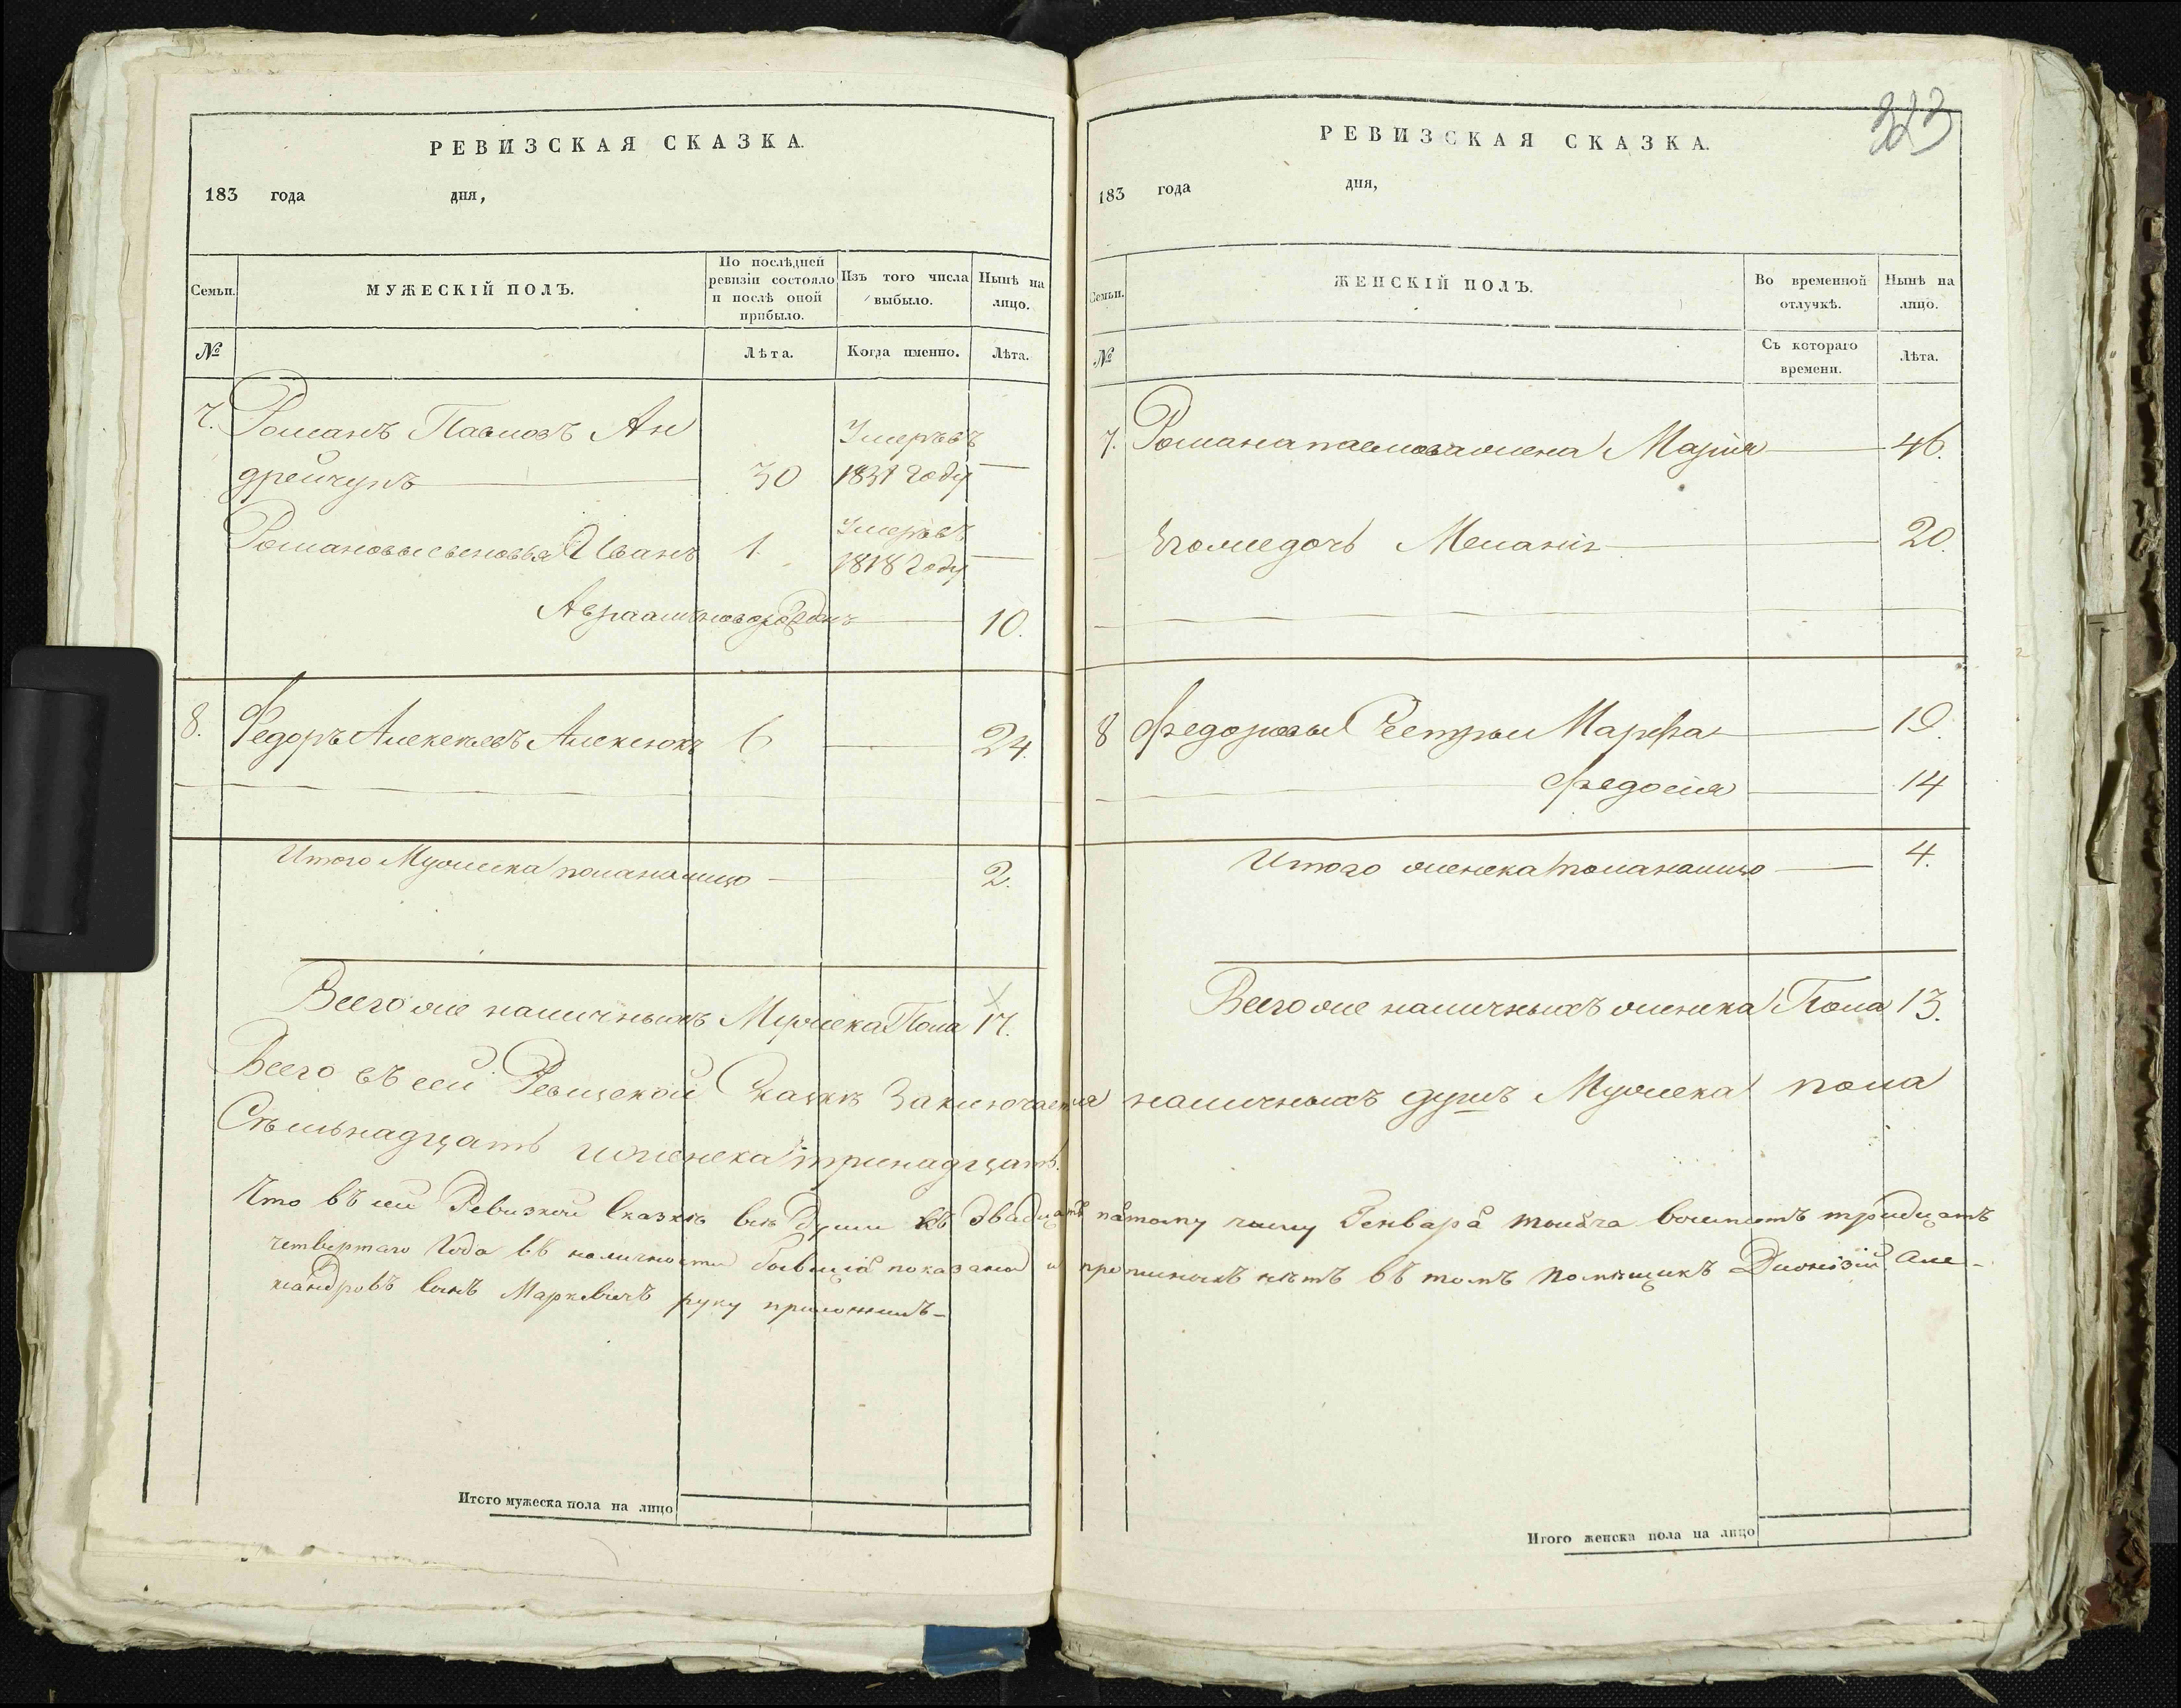 РЕВИЗСКАЯ СКАЗКА.
183 года дня,
Семьи.
МУЖЕСКІЙ ПОЛЪ.
По послѣдней
ревизіи состояло
и послѣ оной
прибыло.
Изъ того числа
выбыло.
Нынѣ на
лицо.
№
Лѣта.
Когда именно.
Лѣта.
7. Романъ Павловъ Ан
дрейчукъ 30
Умеръ въ
1831 году
Романовы сыновья Иванъ 1.
Умеръ въ
1818 году
Авраамъ новорожден 10.
8. Федоръ Алексеевъ Алексюкъ 6 24.
Итого Мужеска пола налицо 2.
Всего же наличныхъ Мужеска Пола 17.
РЕВИЗСКАЯ СКАЗКА.
323
183 года дня,
Семьи.
ЖЕНСКІЙ ПОЛЪ.
Во временной
отлучкѣ.
Нынѣ на
лицо.
№
Съ котораго
времени.
Лѣта.
7. Романа павлова жена Марія 46.
Его же дочь Меланія 20.
8 Федоровы Сестры Марфа 19.
Федосия 14
Итого женска пола налицо 4.
Всего же наличныхъ женска Пола 13.
Всего въ сей Ревизской Сказкѣ Заключается наличныхъ душъ Мужеска пола
Семьнадцать и женска тринадцать.
Что въ сей Ревизкой Сказкѣ всѣ Души къ двадцать пятому числу Генваря тысяча восемсотъ тридцать
четвертаго Года въ наличности бывшія показаны и прописныхъ нѣтъ въ томъ помѣщикъ Дионізій Але-
ксандровъ сынъ Маркевичъ руку приложилъ-
Итого мужеска пола на лицо
Итого женска пола на лицо